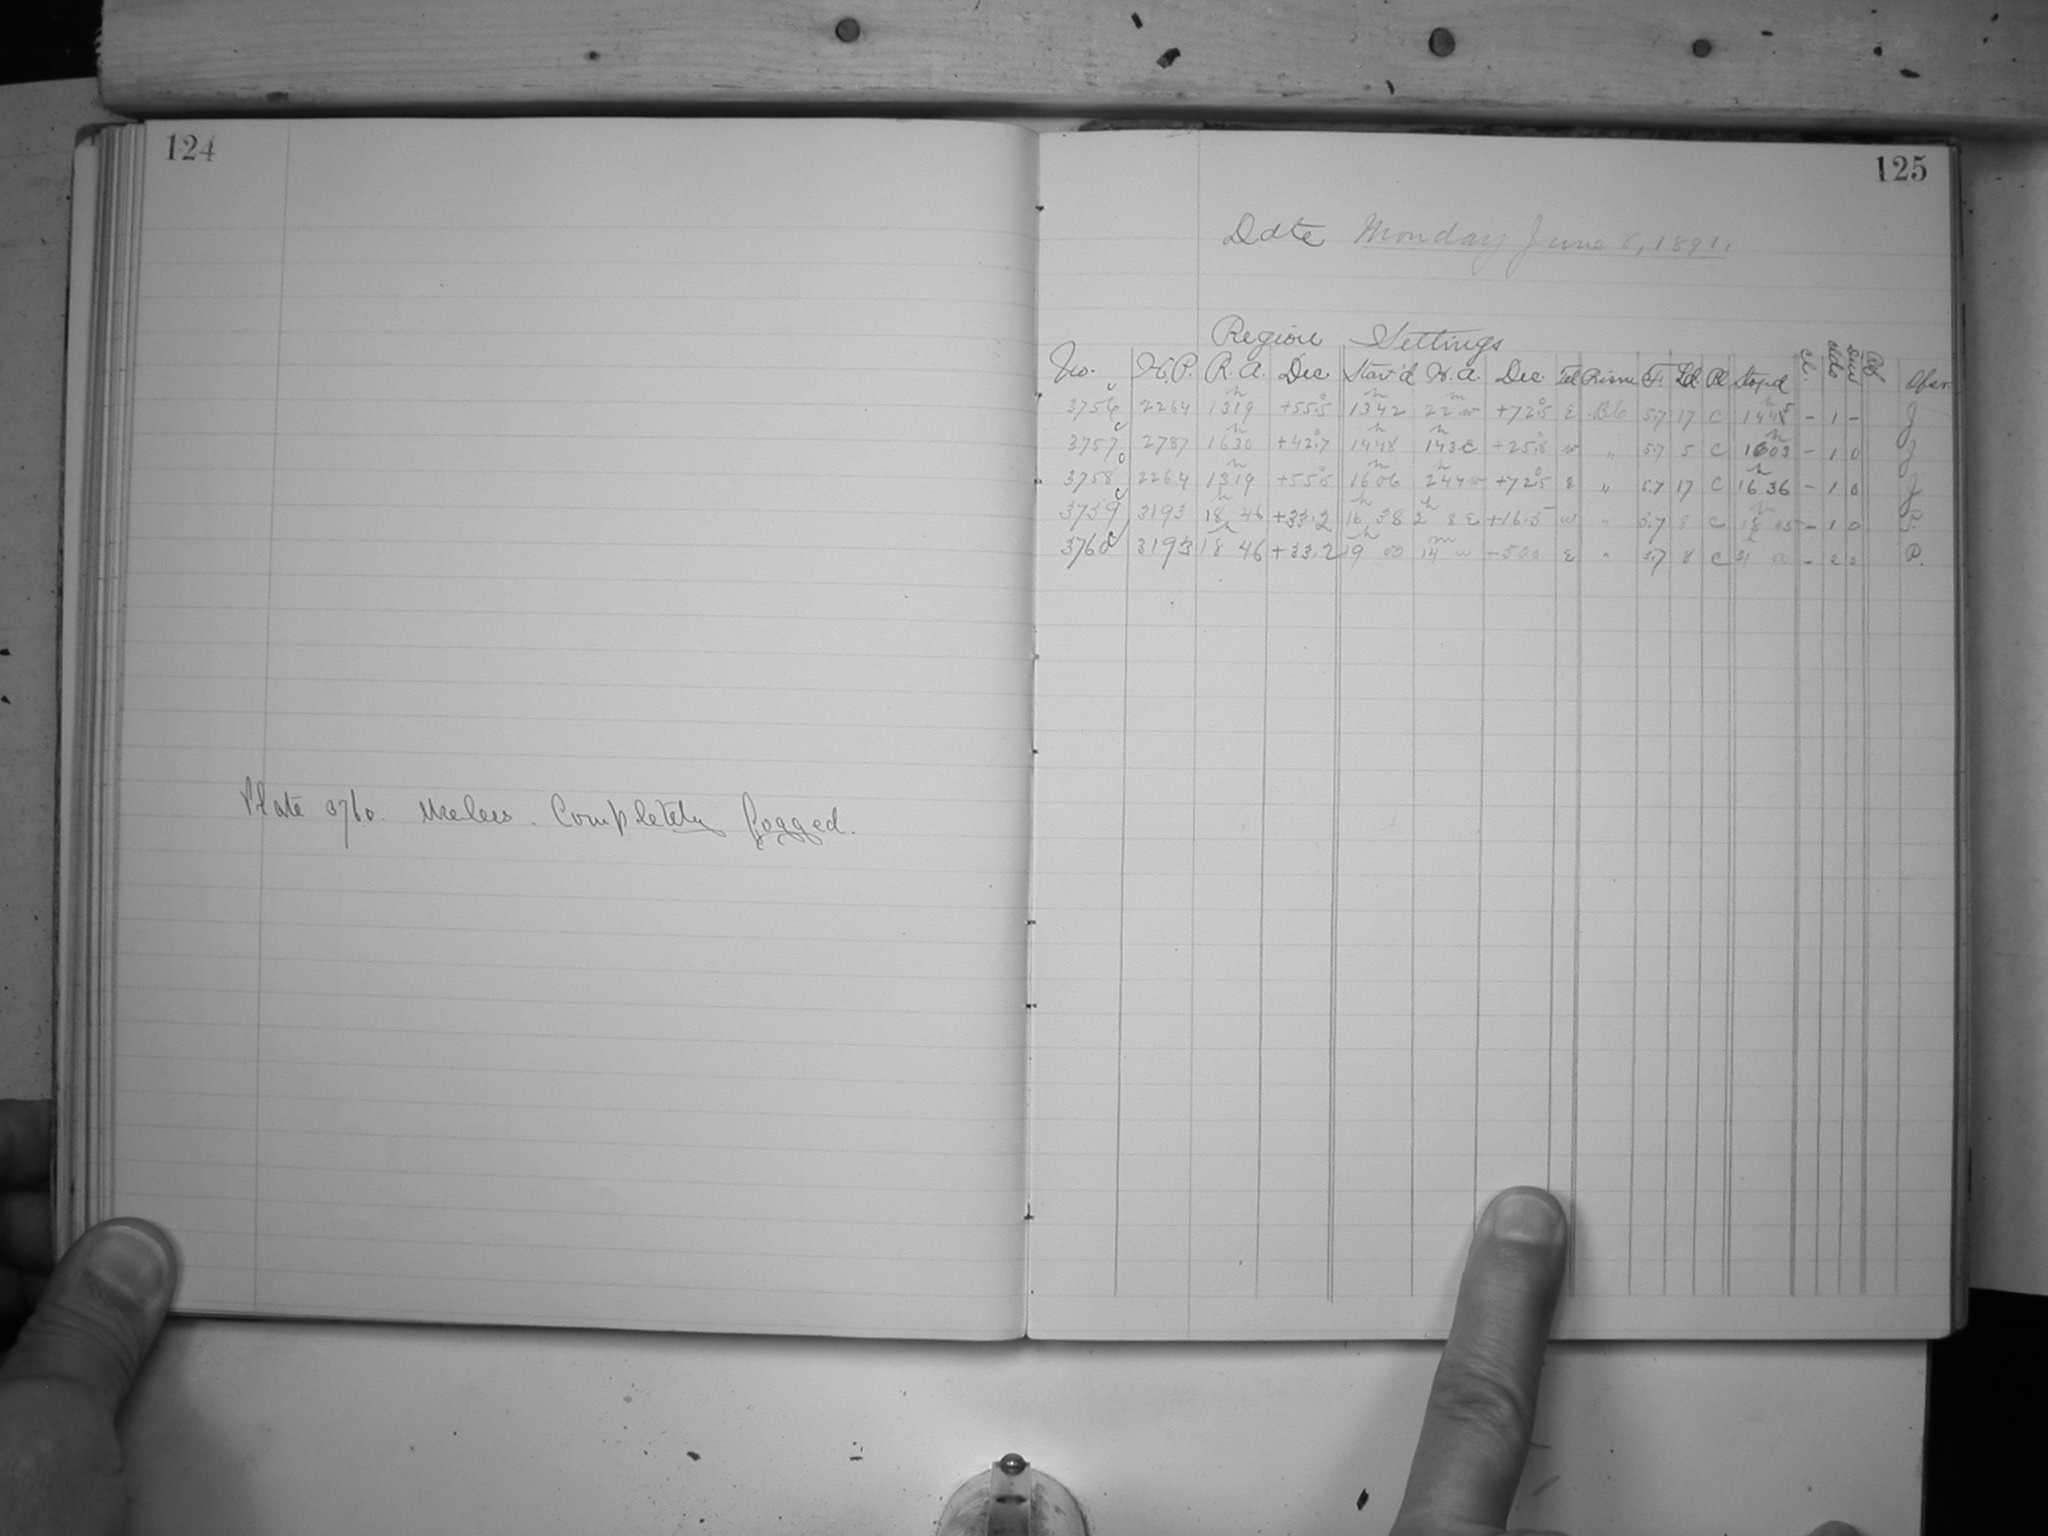 124
Plate 3760. Useless. Completely fogged.
125
Date Monday June 8, 1891.
Region Settings
No. H.P. R.A. Dec. Star'd H.A. Dec. Tel Prism F. Ld. Pl Stop'd Cl. Clds Dew Obser.
3756 2264 13h19 +55.5 13h42 22m w +72.5 E B6 5.7 17 C 14h45 - 1 - J
3757 2787 16h30 +42.7 14h48 1h43 E +25.8 w " 5.7 5 C 16h03 - 1 0 J
3758 2264 13h19 +55.5 16h06 2h44 w +72.5 E " 5.7 17 C 16h36 - 1 0 J
3759 3193 18h 46 +33.2 16h 38 2h 8 E +16.5 w " 5.7 8 C 18h 05 - 1 0 P.
3760 3193 18h 46 +33.2 19h 00 14m w E " 5.7 8 C 21 00 - 2 0 P.